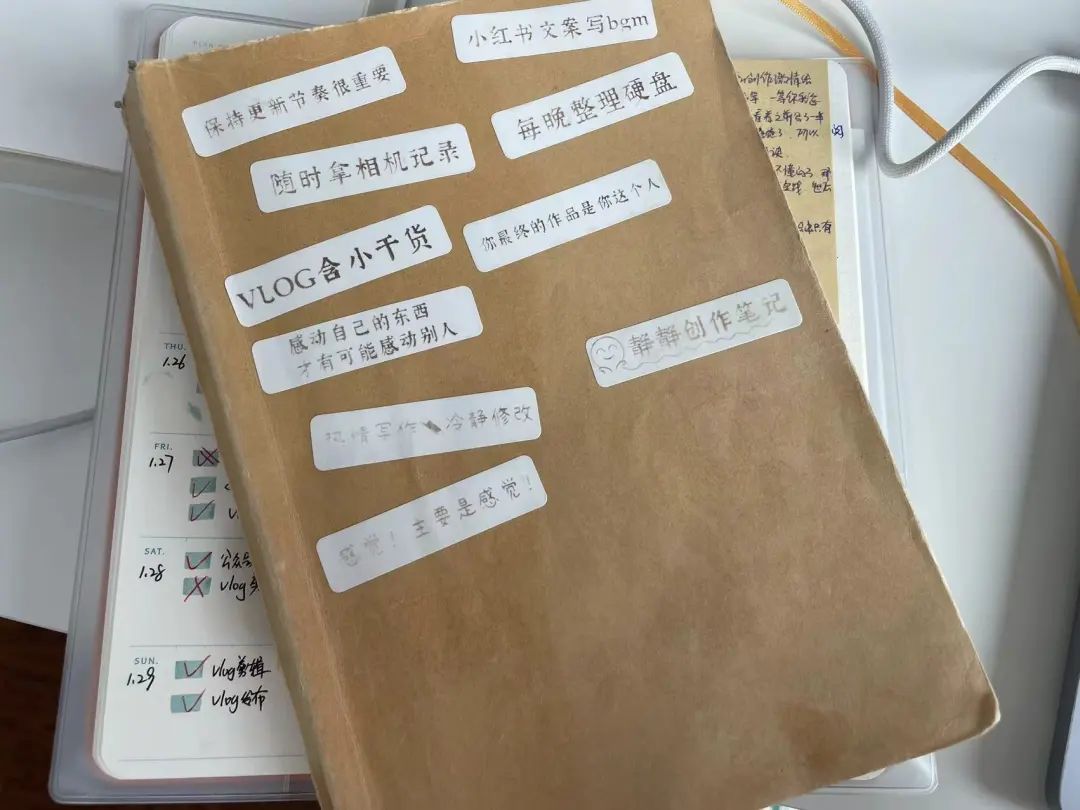 小红书文案写bgm
保持更新节奏很重要
每晚整理硬盘
随时拿相机记录
你最终的作品是你这个人
VLOG含小干货
感动自己的东西
才有可能感动别人
静静创作笔记
热情写作 冷静修改
感觉！主要是感觉！
THU.
1.26
FRI.
1.27
SAT.
1.28
公众号
vlog
SUN.
1.29
vlog剪辑
vlog发布